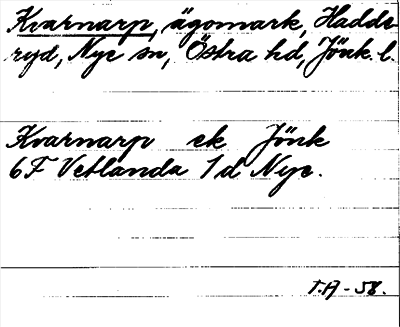 Kvarnarp, ägomark, Hadde-
ryd, Nye sn, Östra hd, Jönk. l.
Kvarnarp ek Jönk
6F Vetlanda 1d Nye.
T.A - 58.